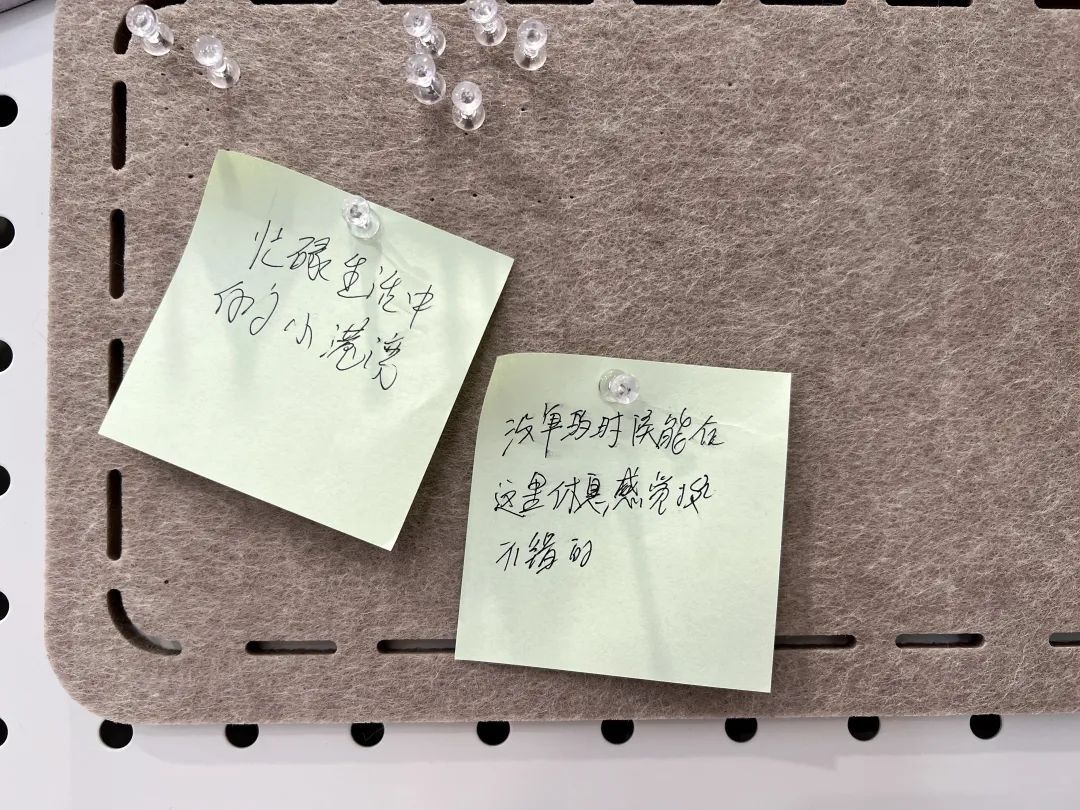 忙碌生活中
的小港湾
没单的时候能在
这里休息,感觉挺
不错的